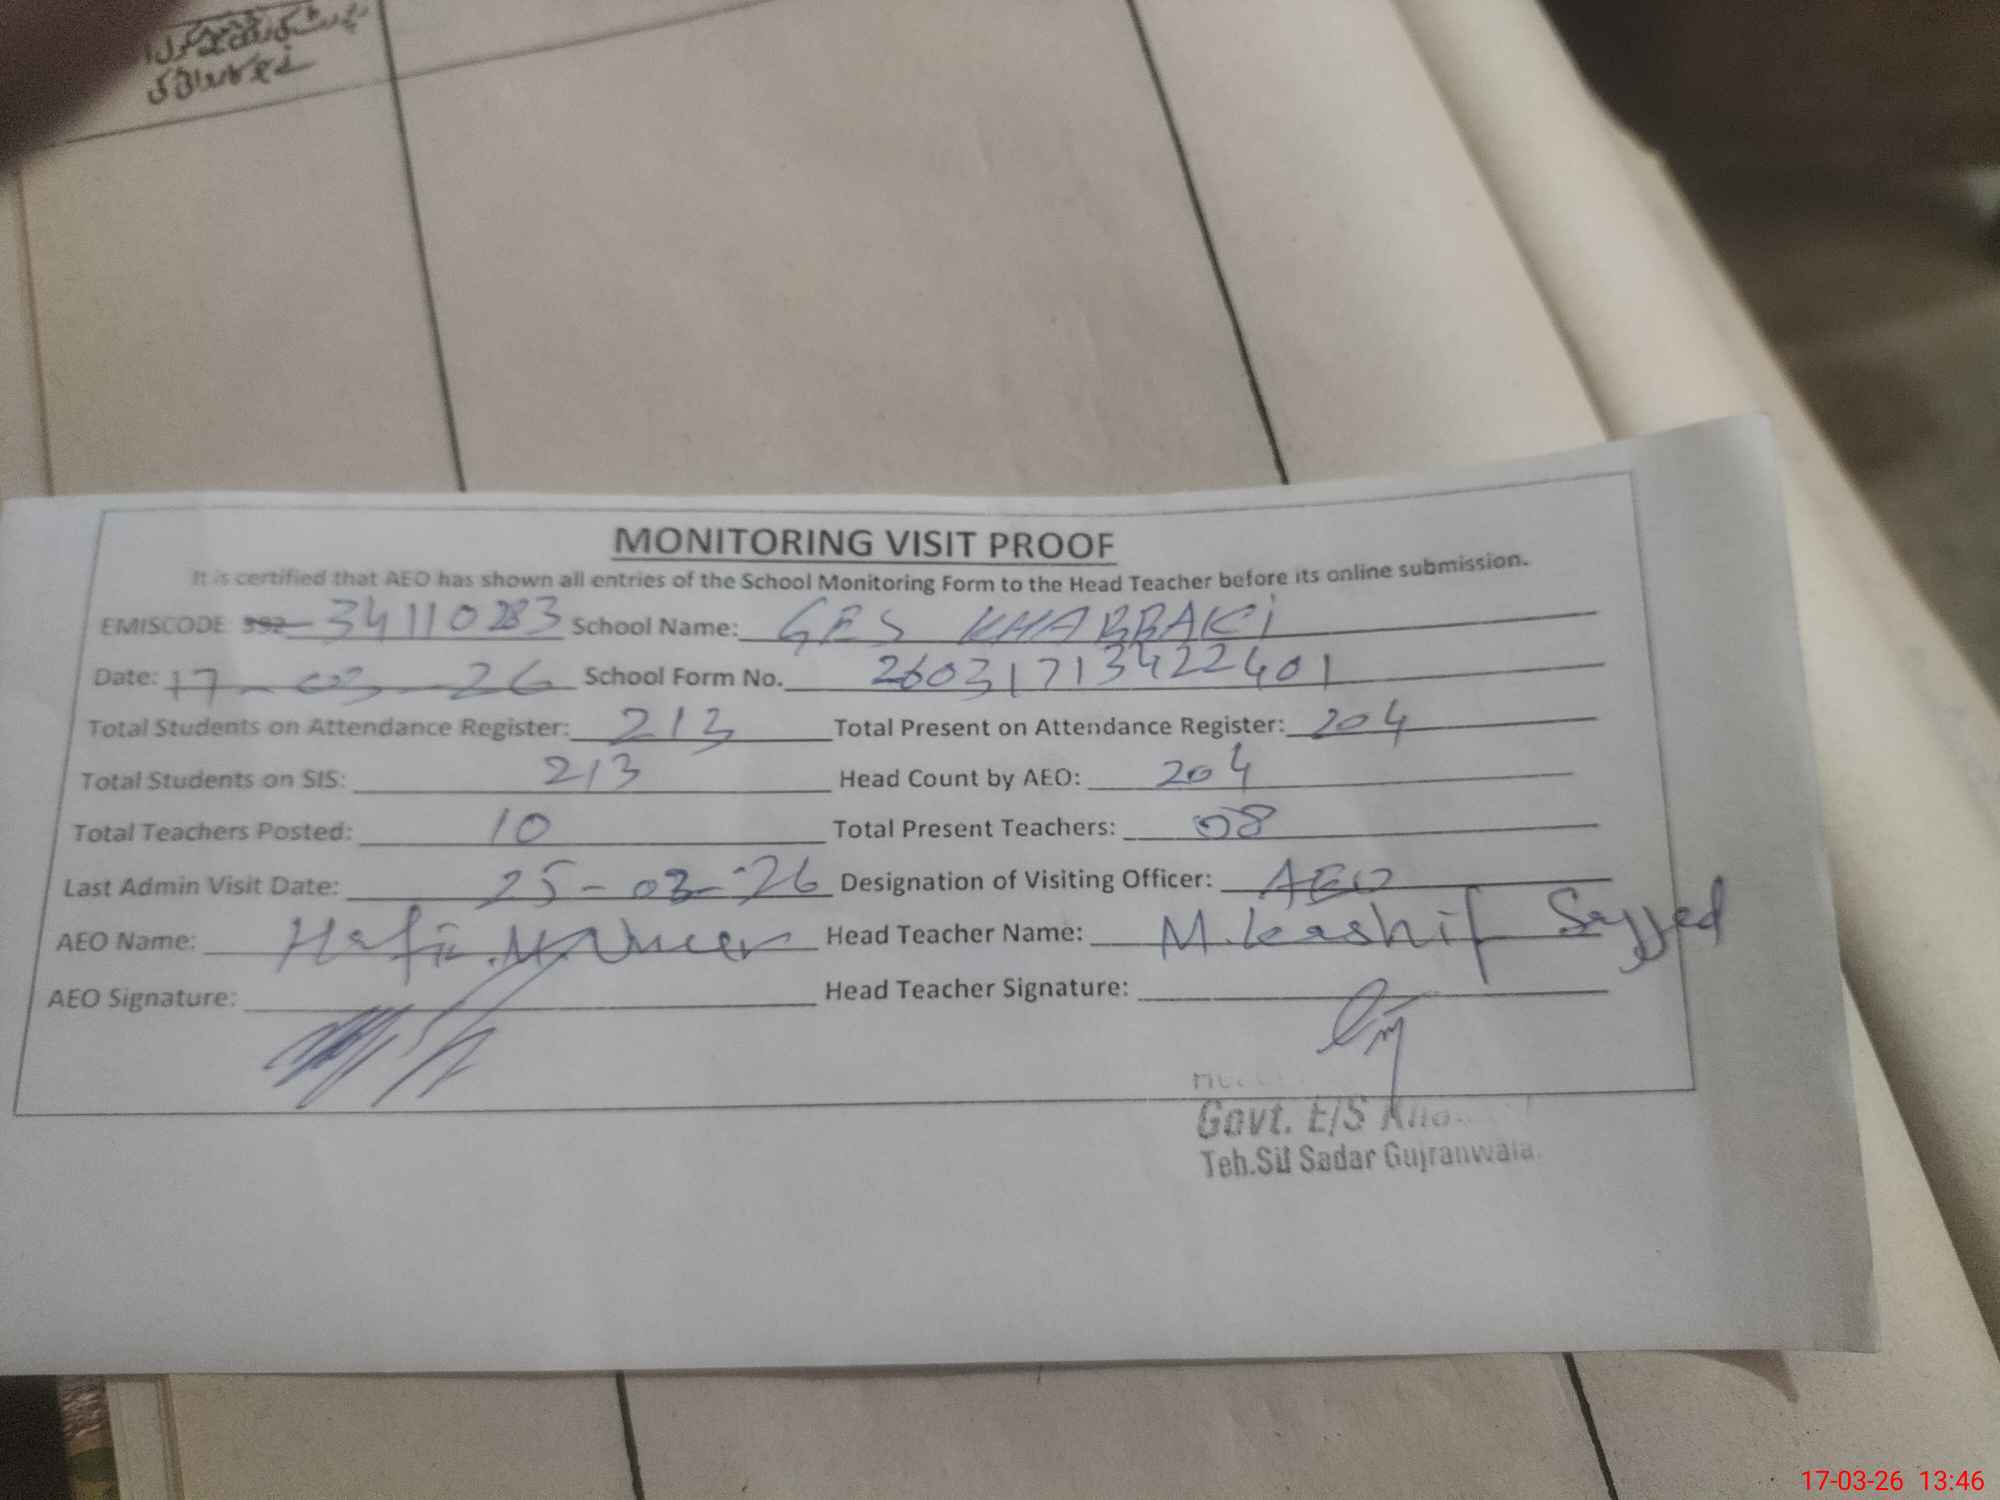 MONITORING VISIT PROOF
It is certified that AEO has shown all entries of the School Monitoring Form to the Head Teacher before its online submission.
EMISCODE 392 34110283 School Name: GES KHABBAKI
Date: 17-03-26 School Form No. 2603171342 2401
Total Students on Attendance Register: 213 Total Present on Attendance Register: 204
Total Students on SIS: 213 Head Count by AEO: 204
Total Teachers Posted: 10 Total Present Teachers: 08
Last Admin Visit Date: 25-02-26 Designation of Visiting Officer: AEO
AEO Name: Hafiz M. Umer Head Teacher Name: M. Kashif Sayyed
AEO Signature: Head Teacher Signature:
Govt. E/S
Teh.Sil Sadar Gujranwala.
17-03-26 13:46